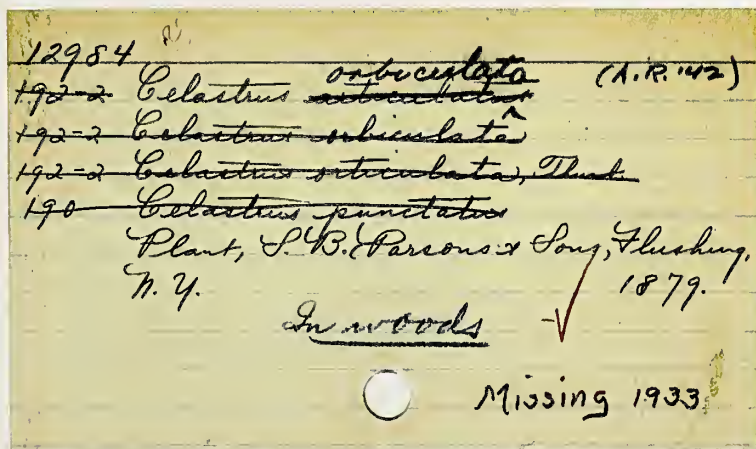 12984
orbiculata (A.R. '42)
192-2 Celastrus articulatus
192-2 Celastrus orbiculata
192-2 Celastrus orticulata, Thunb.
190 Celastrus punctatus
Plant, S. B. Parsons & Sons, Flushing,
N. Y. 1879.
In woods
Missing 1933